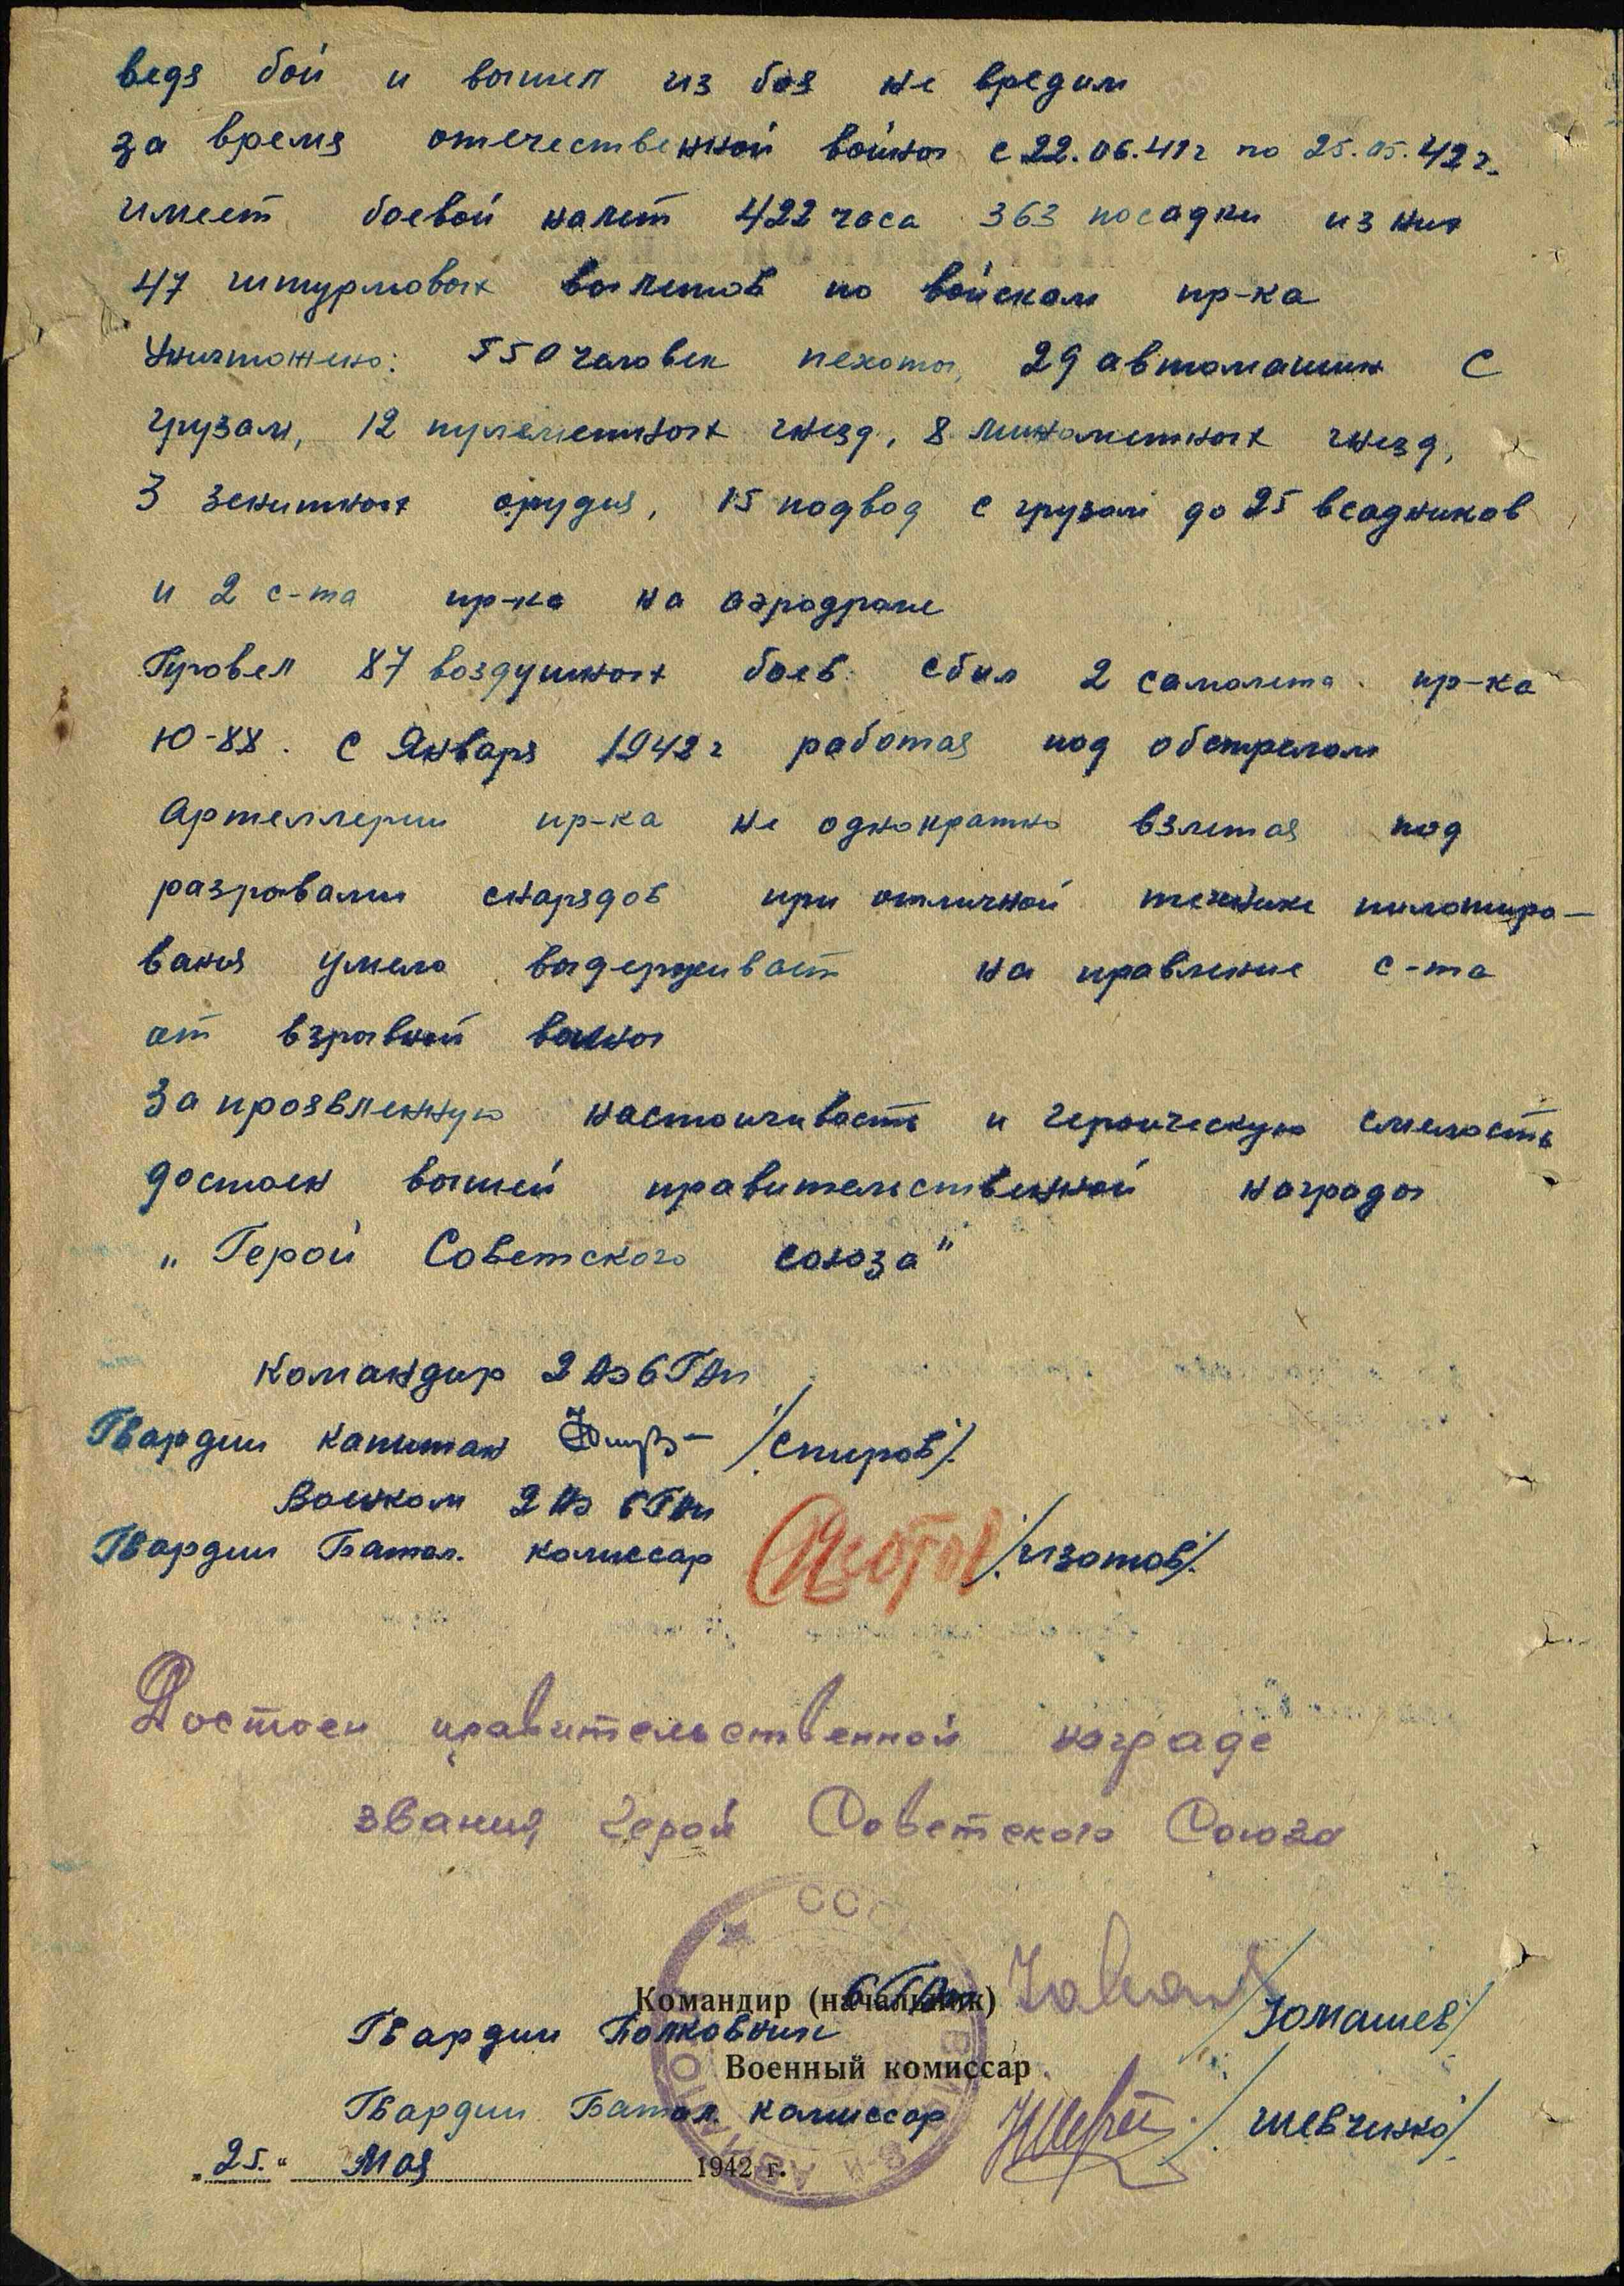 ведя бой и вышел из боя не вредим
за время отечественной войны с 22.06.41г по 25.05.42г.
имеет боевой налет 422 часа 363 посадки из них
47 штурмовых вылетов по войскам пр-ка
Уничтожено: 550 человек пехоты, 29 автомашин с
грузам, 12 пулеметных гнезд, 8 минометных гнезд,
3 зенитных орудия, 15 подвод с грузом до 25 всадников
и 2 с-та пр-ка на аэродроме
Провел 87 воздушных боев. сбил 2 самолета пр-ка
Ю-88. С Января 1942г работая под обстрелом
Артеллерии пр-ка не однократно взлетая под
разрывами снарядов при отличной технике пилотиро-
вания умело выдерживает на правление с-та
от взрывной волны
За проявленную настойчивость и героическую смелость
достоен высшей правительственной награды
„Герой Советского союза"
Командир 2 АЭ 6 ГАП
Гвардии капитан /Спиров/.
Военком 2 АЭ 6 ГАП
Гвардии Батал. комиссар Изотов /Изотов/.
Достоен правительственной награде
звания Герой Советского Союза
СС
Командир (начальник) 6 ГАП
Гвардии Полковник /Юмашев/
Военный комиссар
Гвардии Батал. комиссар /Шевченко/.
„25.“ Мая 1942 г.